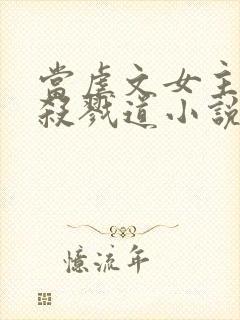 當虐文女主
殺戮道小說
憶流年